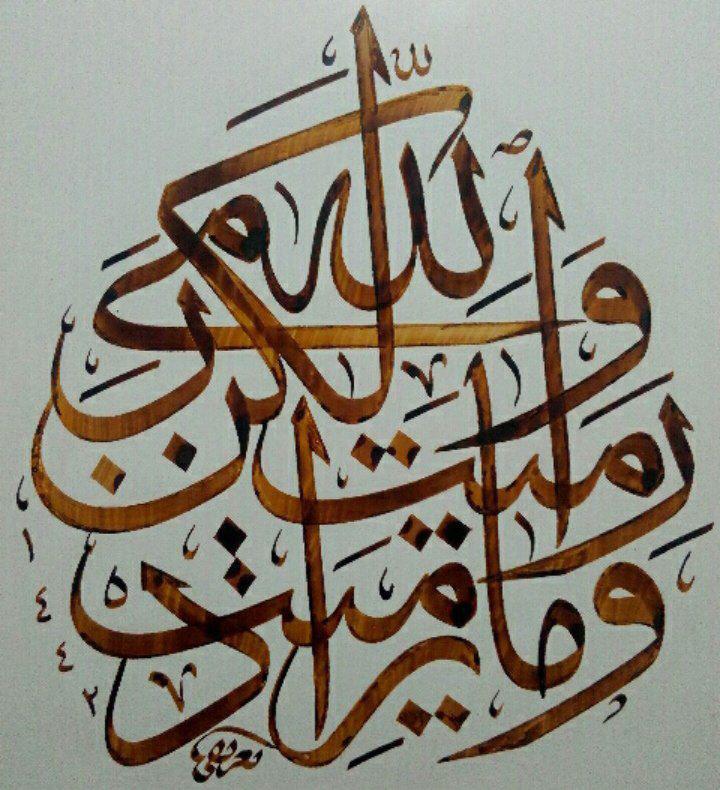 وما رميت إذ
رميت ولكن
الله رمى
١٤٤٢